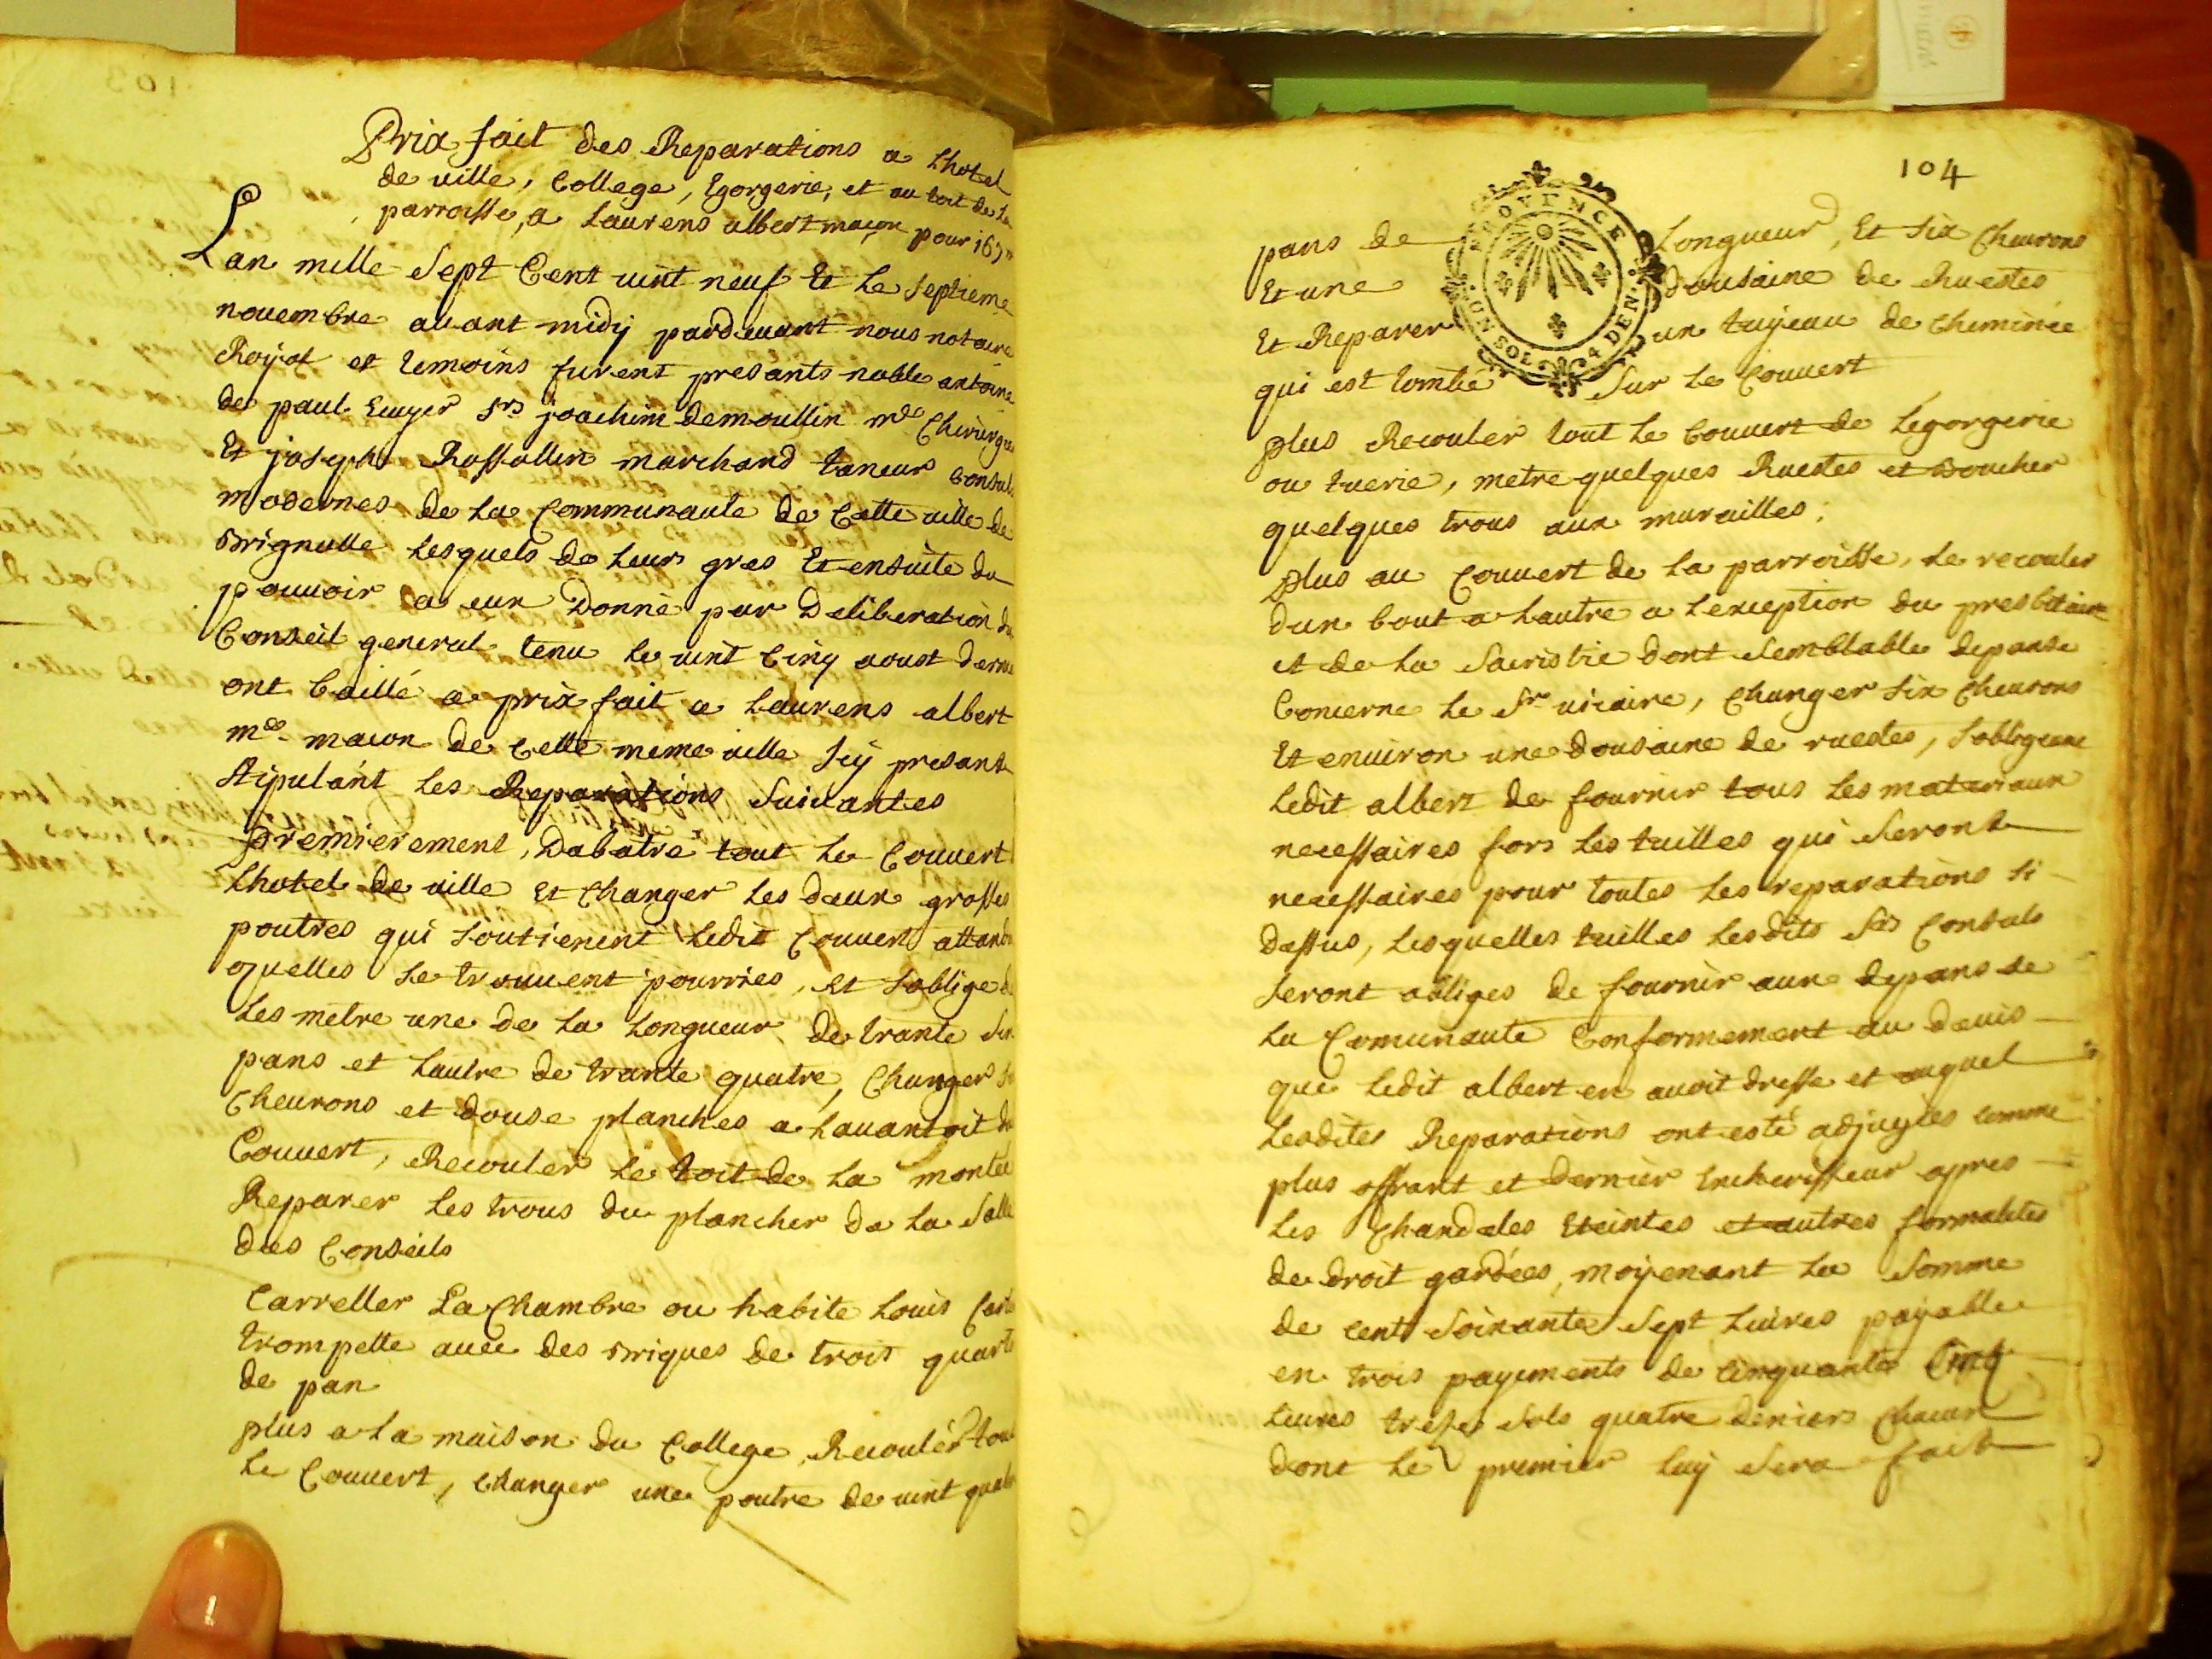 Prix fait des Reparations a Lhotel
de ville, College, Egorgerie, et au toit de la
parroisse, a Laurens albert maçon pour 167#
Lan mille Sept Cent vint neuf Et Le Septieme
nouembre auant midy pardeuant nous notaire
Royal et temoins furent presants noble antoine
de paul Ecuyer Srs joachim demoullin me Chirurgien
Et joseph Rossollin marchand taneur Consuls
modernes de La Communaute de Cette ville de
Brignolle Lesquels de Leurs gres Et ensuite du
pouuoir a eux Donné par Deliberation du
Conseil general tenu Le vint Cinq aoust dernier
ont baillé a prix fait a Laurens albert
me maçon de Cette meme ville Icy presant
Stipulant Les Reparations Suivantes
Premierement, Dabatre tout Le Couuert
Lhotel de ville Et Changer Les deux grosses
poutres qui soutienent Ledit Couuert attandu
quelles Se trouuent pourries, et soblige de
Les metre une de La Longueur de trante Six
pans et Lautre de trante quatre, Changer
Cheurons et douse planches a Lauantoit du
Couuert, Recouler Le toit de La montée
Reparer Les trous du plancher de La Salle
des Conseils
Carreller La Chambre ou habite Louis
trompette auec des Briques de trois quarts
de pan
plus a La maison du College Recouler tout
Le Couuert, Changer une poutre de vint quatre
104
pans de Longueur, Et Six Cheurons
Et une dousaine de Ruestes
Et Reparer un tuyeau de Cheminée
qui est tombé Sur Le Couuert
PROVENCE
UN SOL 4 DEN.
plus Recouler tout Le Couuert de Legorgerie
ou tuerie, metre quelques Ruestes et Boucher
quelques trous aux murailles;
Plus au Couuert de La parroisse, Le recouler
dun bout a Lautre a Lexception du presbitaire
et de La Sacristie dont Semblable depanse
Concerne Le Sr vicaire, Changer Six Cheurons
Et enuiron une dousaine de ruestes, Sobligeant
Ledit albert de fournir tous Les materiaux
necessaires fors Les tuilles qui Seront
necessaires pour toutes Les reparations Si
dessus, Lesquelles tuilles Lesdits Srs Consuls
Seront obliges de fournir aux depans de
La Comunaute Conformement au deuis
que Ledit albert en auoit dressé et auquel
Lesdites Reparations ont esté adjugées comme
plus offrant et dernier Encherisseur apres
Les Chandeles Eteintes et autres formalites
de droit gardées, moyenant La Somme
de cent Soixante Sept Liures payable
en trois payements de Cinquante Cinq
Liures trese Sols quatre deniers Chacun
dont Le premier Luy Sera fait